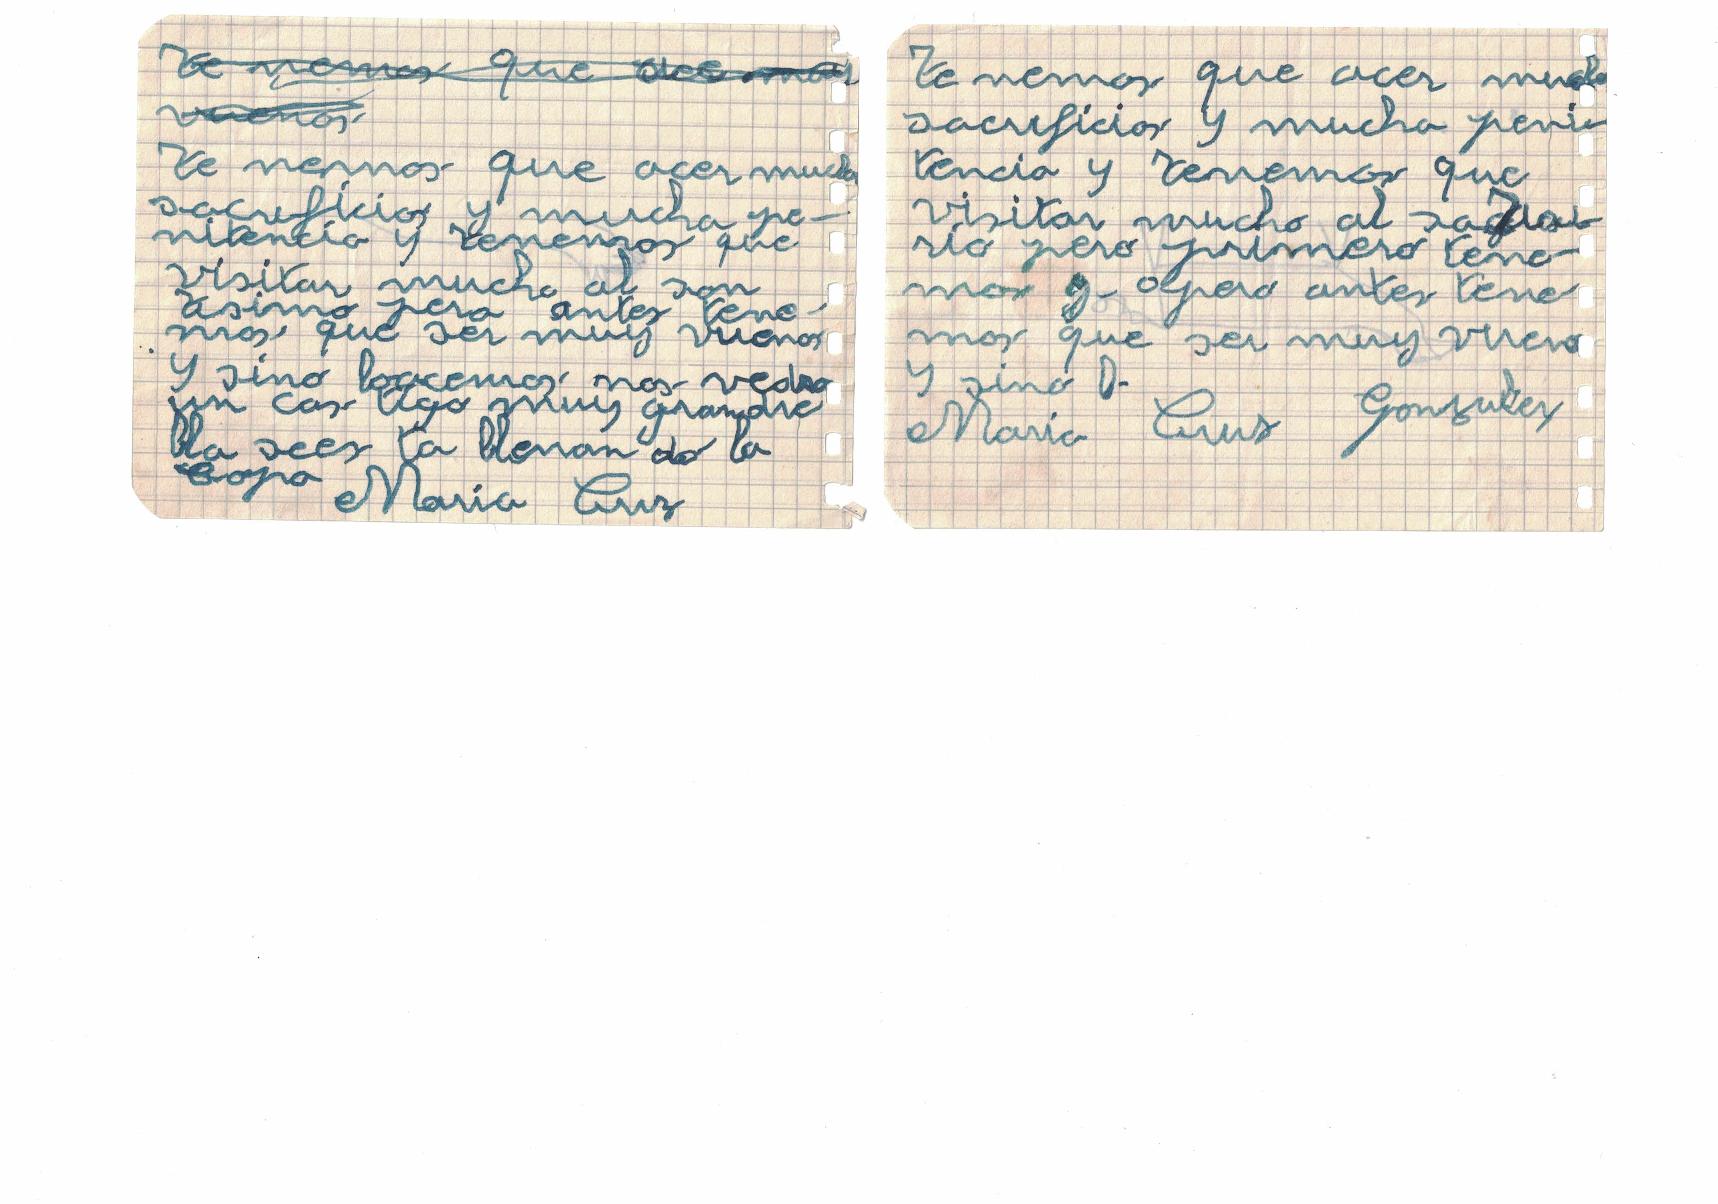 Te nemos que ace mos
vuenos
Te nemos que acer mucho
sacrificios y mucha pe-
nitencia y tenemos que
visitar mucho al san
tisimo pero antes tene-
mos que ser muy vuenos
y sino loacemos nos vedra
un cas tigo muy grandre
lla sees ta llenan do la
copa
Maria Cruz
Te nemos que acer mucho
sacrificios y mucha peni-
tencia y tenemos que
visitar mucho al sagra-
rio pero primero tene-
mos q- o pero antes tene
mos que ser muy vueno
y sino l-
Maria Cruz Gonzulez